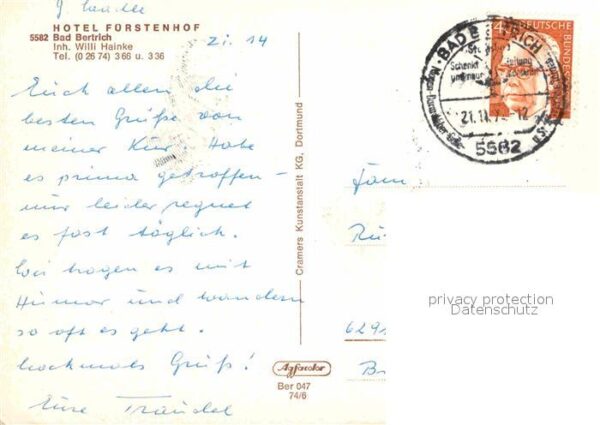 HOTEL FÜRSTENHOF
5582 Bad Bertrich
Inh. Willi Hainke
Tel. (0 26 74) 3 66 u. 3 36
Zi. 14
Euch allen die
besten Grüße von
meiner Kur. Habe
es prima getroffen –
nur leider regnet
es fast täglich.
Wir tragen es mit
Humor und wandern
so oft es geht.
Nochmals Grüß!
Eure Traudel
Cramers Kunstanstalt KG, Dortmund
Agfacolor
Ber 047
74/6
DEUTSCHE BUNDES
BAD BERTRICH
Schenkt
21.11.7 - 12
5582
Fam
Rü
629
B
privacy protection
Datenschutz